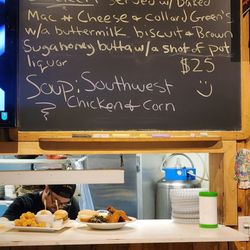 Chicken served w/ Baked
Mac # Cheese & collard Green's
w/a buttermilk biscuit & Brown
Suga honey butta w/ a shot of pot
liquor
$25
Soup: Southwest
Chicken & Corn